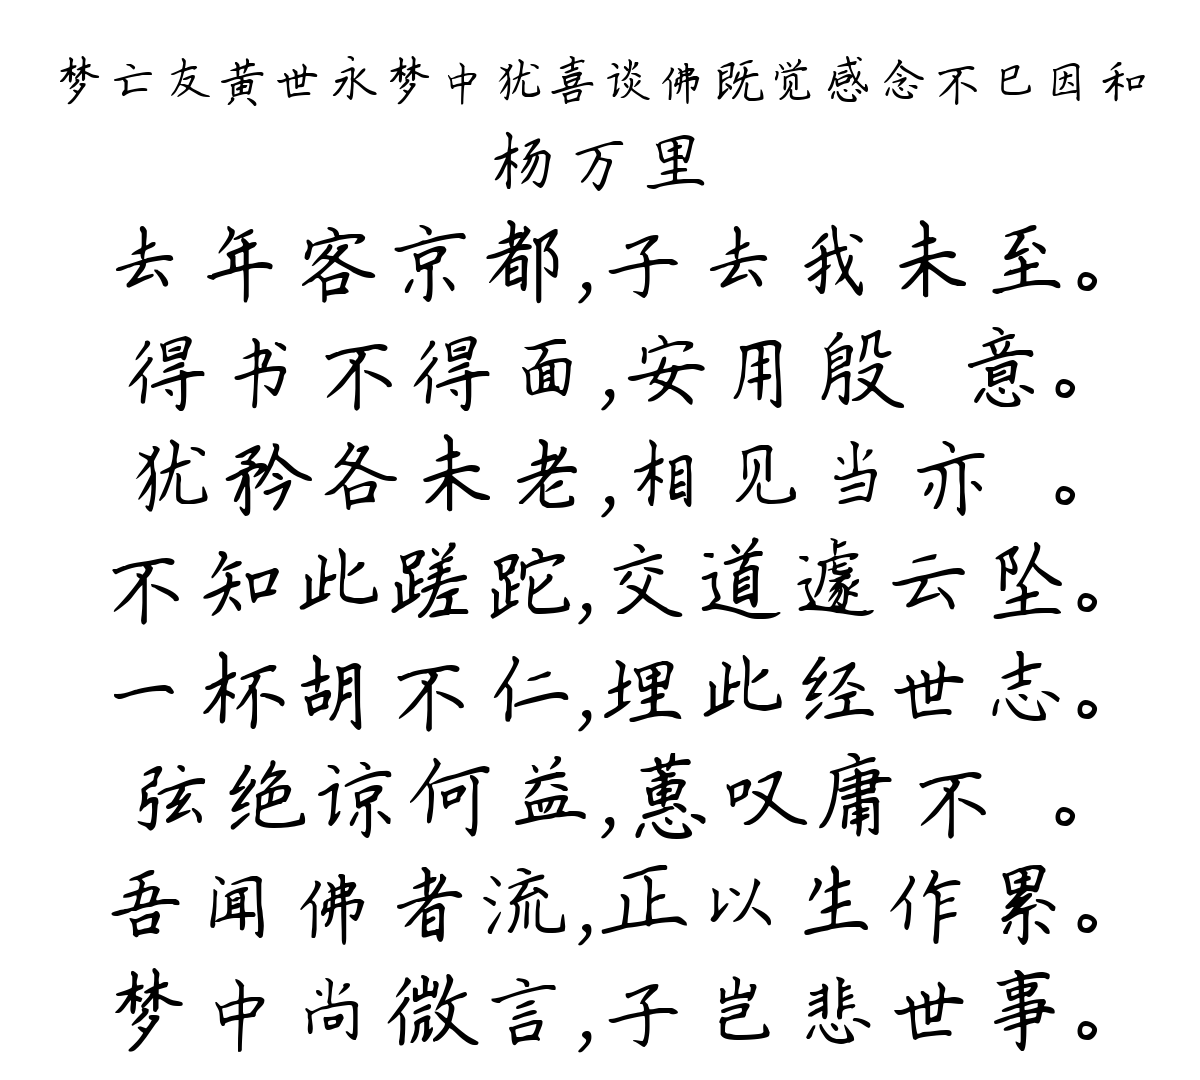 梦亡友黄世永梦中犹喜谈佛既觉感念不已因和
杨万里
去年客京都,子去我未至。
得书不得面,安用殷 意。
犹矜各未老,相见当亦 。
不知此蹉跎,交道遽云坠。
一杯胡不仁,埋此经世志。
弦绝谅何益,蕙叹庸不 。
吾闻佛者流,正以生作累。
梦中尚微言,子岂悲世事。